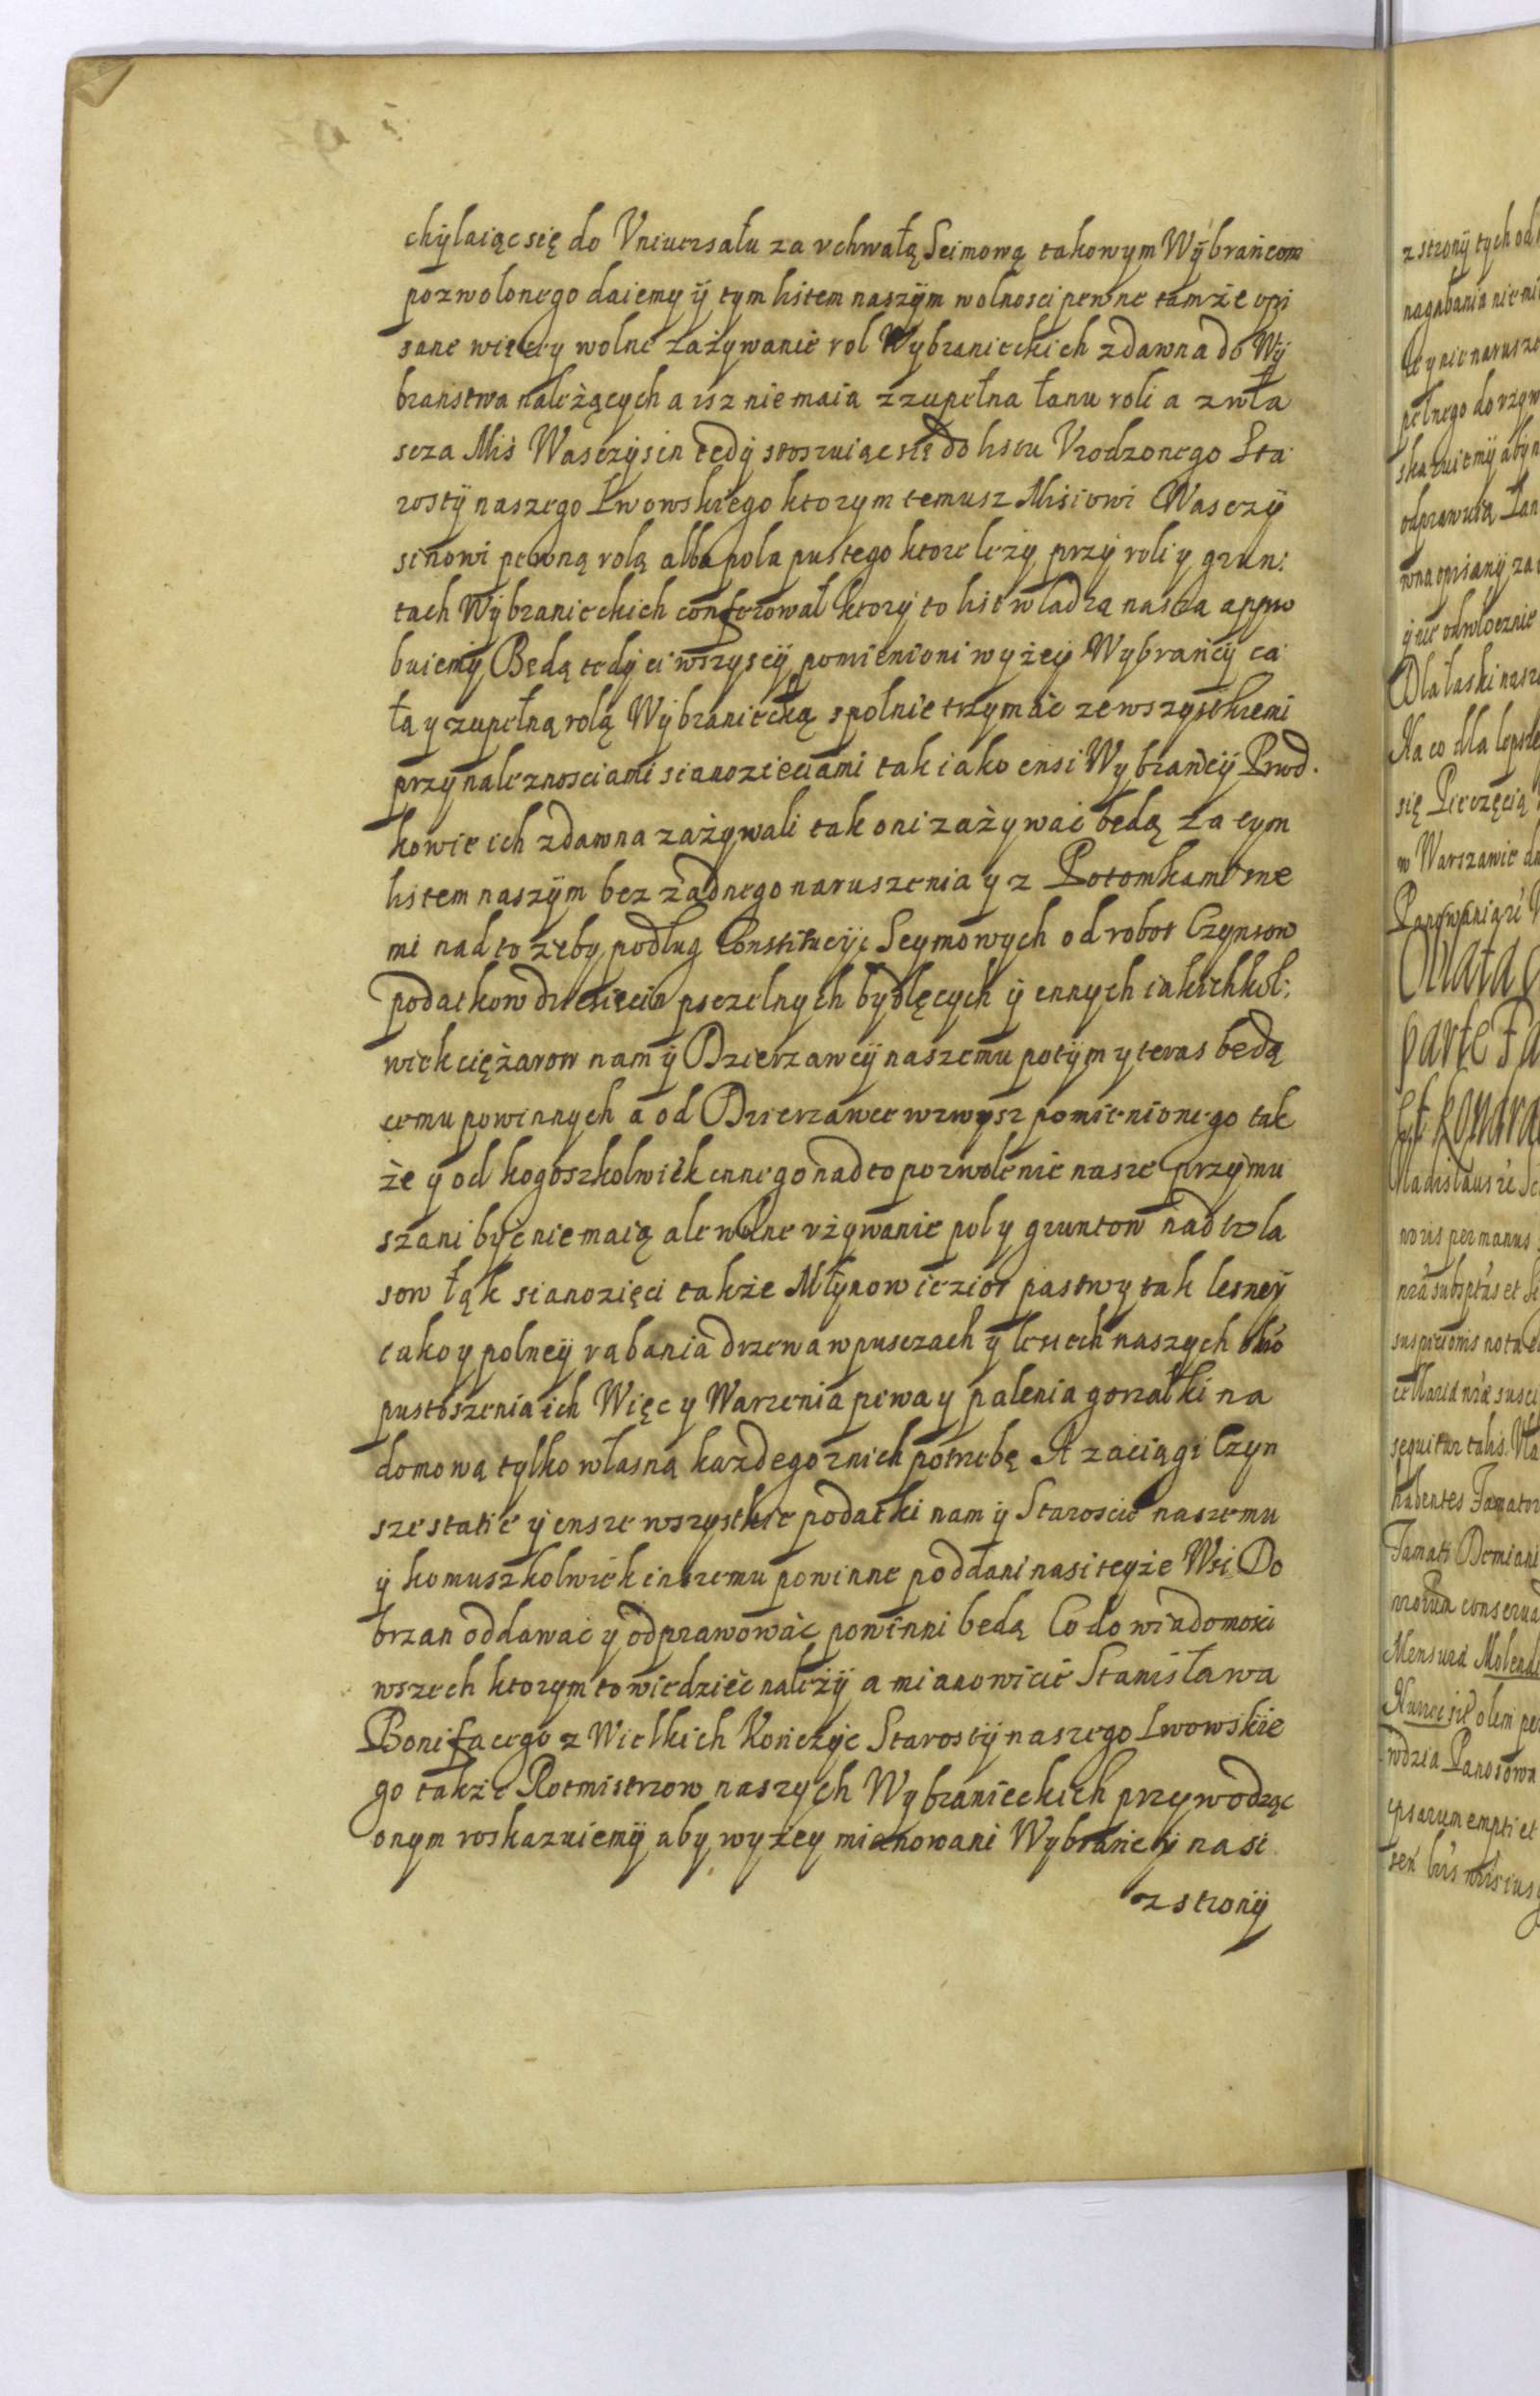 chÿlaiąc się do Vniuersału za vchwałą Seimową takowym Wÿbrańcom
pozwolonego daiemy ÿ tym listem naszÿm wolnosci pewne tamże opi
sane więcy wolne zażywanie rol Wybranieckich zdawna do Wÿ
braństwa należących a isz nie maia zzupełna łanu roli a zwła
scza Miś Wasczÿsin tedÿ stoszuiąc się do listu Vrodzonego Sta
rostÿ naszego Lwowskiego ktorym temusz Misiowi Wasczÿ
sinowi pewną rolą albo pola pustego ktore leży przÿ roli y grun:
tach Wÿbranieckich conferował ktorÿ to list władzą naszą appro
buiemÿ Będą tedÿ ci wszyscÿ pomienioni wyżeÿ Wybrańcÿ ca
łą y zupełną rolą Wÿbraniecką spolnie trzymać ze wszystkiemi
przynaleznosciami sianozieciami tak iako ensi Wybrańcÿ Przod.
kowie ich zdawna zażywali tak oni zażywać będą za tym
listem naszÿm bez żadnego naruszenia y z Potomkami sme
mi nad to zeby podług Constitucÿc Seymowych od robot Czynszow
podatkow dziesięcin psczelnych bydlęcych ÿ ennych iakichkol:
wiek ciężarow nam ÿ Dzierzawcÿ naszemu potÿm y teras będą
cemu powinnych a od Dzierzawce wzwysz pomienionego tak
że ÿ od kogoszkolwiek ennego nad to pozwolenie nasze przÿmu
szani być nie maią ale wolne vżywanie pol y gruntow nad to la
sow łąk sianozięci także Młynow iezior pastwy tak lesneÿ
iako y polneÿ rąbania drzewa w pusczach ÿ lesiech naszych okró
pustoszenia ich Więc y Warzenia pewa y palenia gorzałki na
domową tylko własną każdego znich potrzebę A zaciągi Czyn
sze statie ÿ ensze wszystkie podatki nam ÿ Staroscie naszemu
ÿ komuszkolwiek inszemu powinne poddani nasi teyże Wsi Do
brzan oddawać ÿ odprawować powinni będą Co do wiadomosci
wszech ktorym to wiedzieć należÿ a mianowicie Stanisława
Bonifacego z Wielkich Kończyc Starostÿ naszego Lwowskie
go także Rotmistrzow naszych Wybranieckich przywodząc
onym roskazuiemÿ aby wyżey mianowani Wybrańcy nasi
z stronÿ